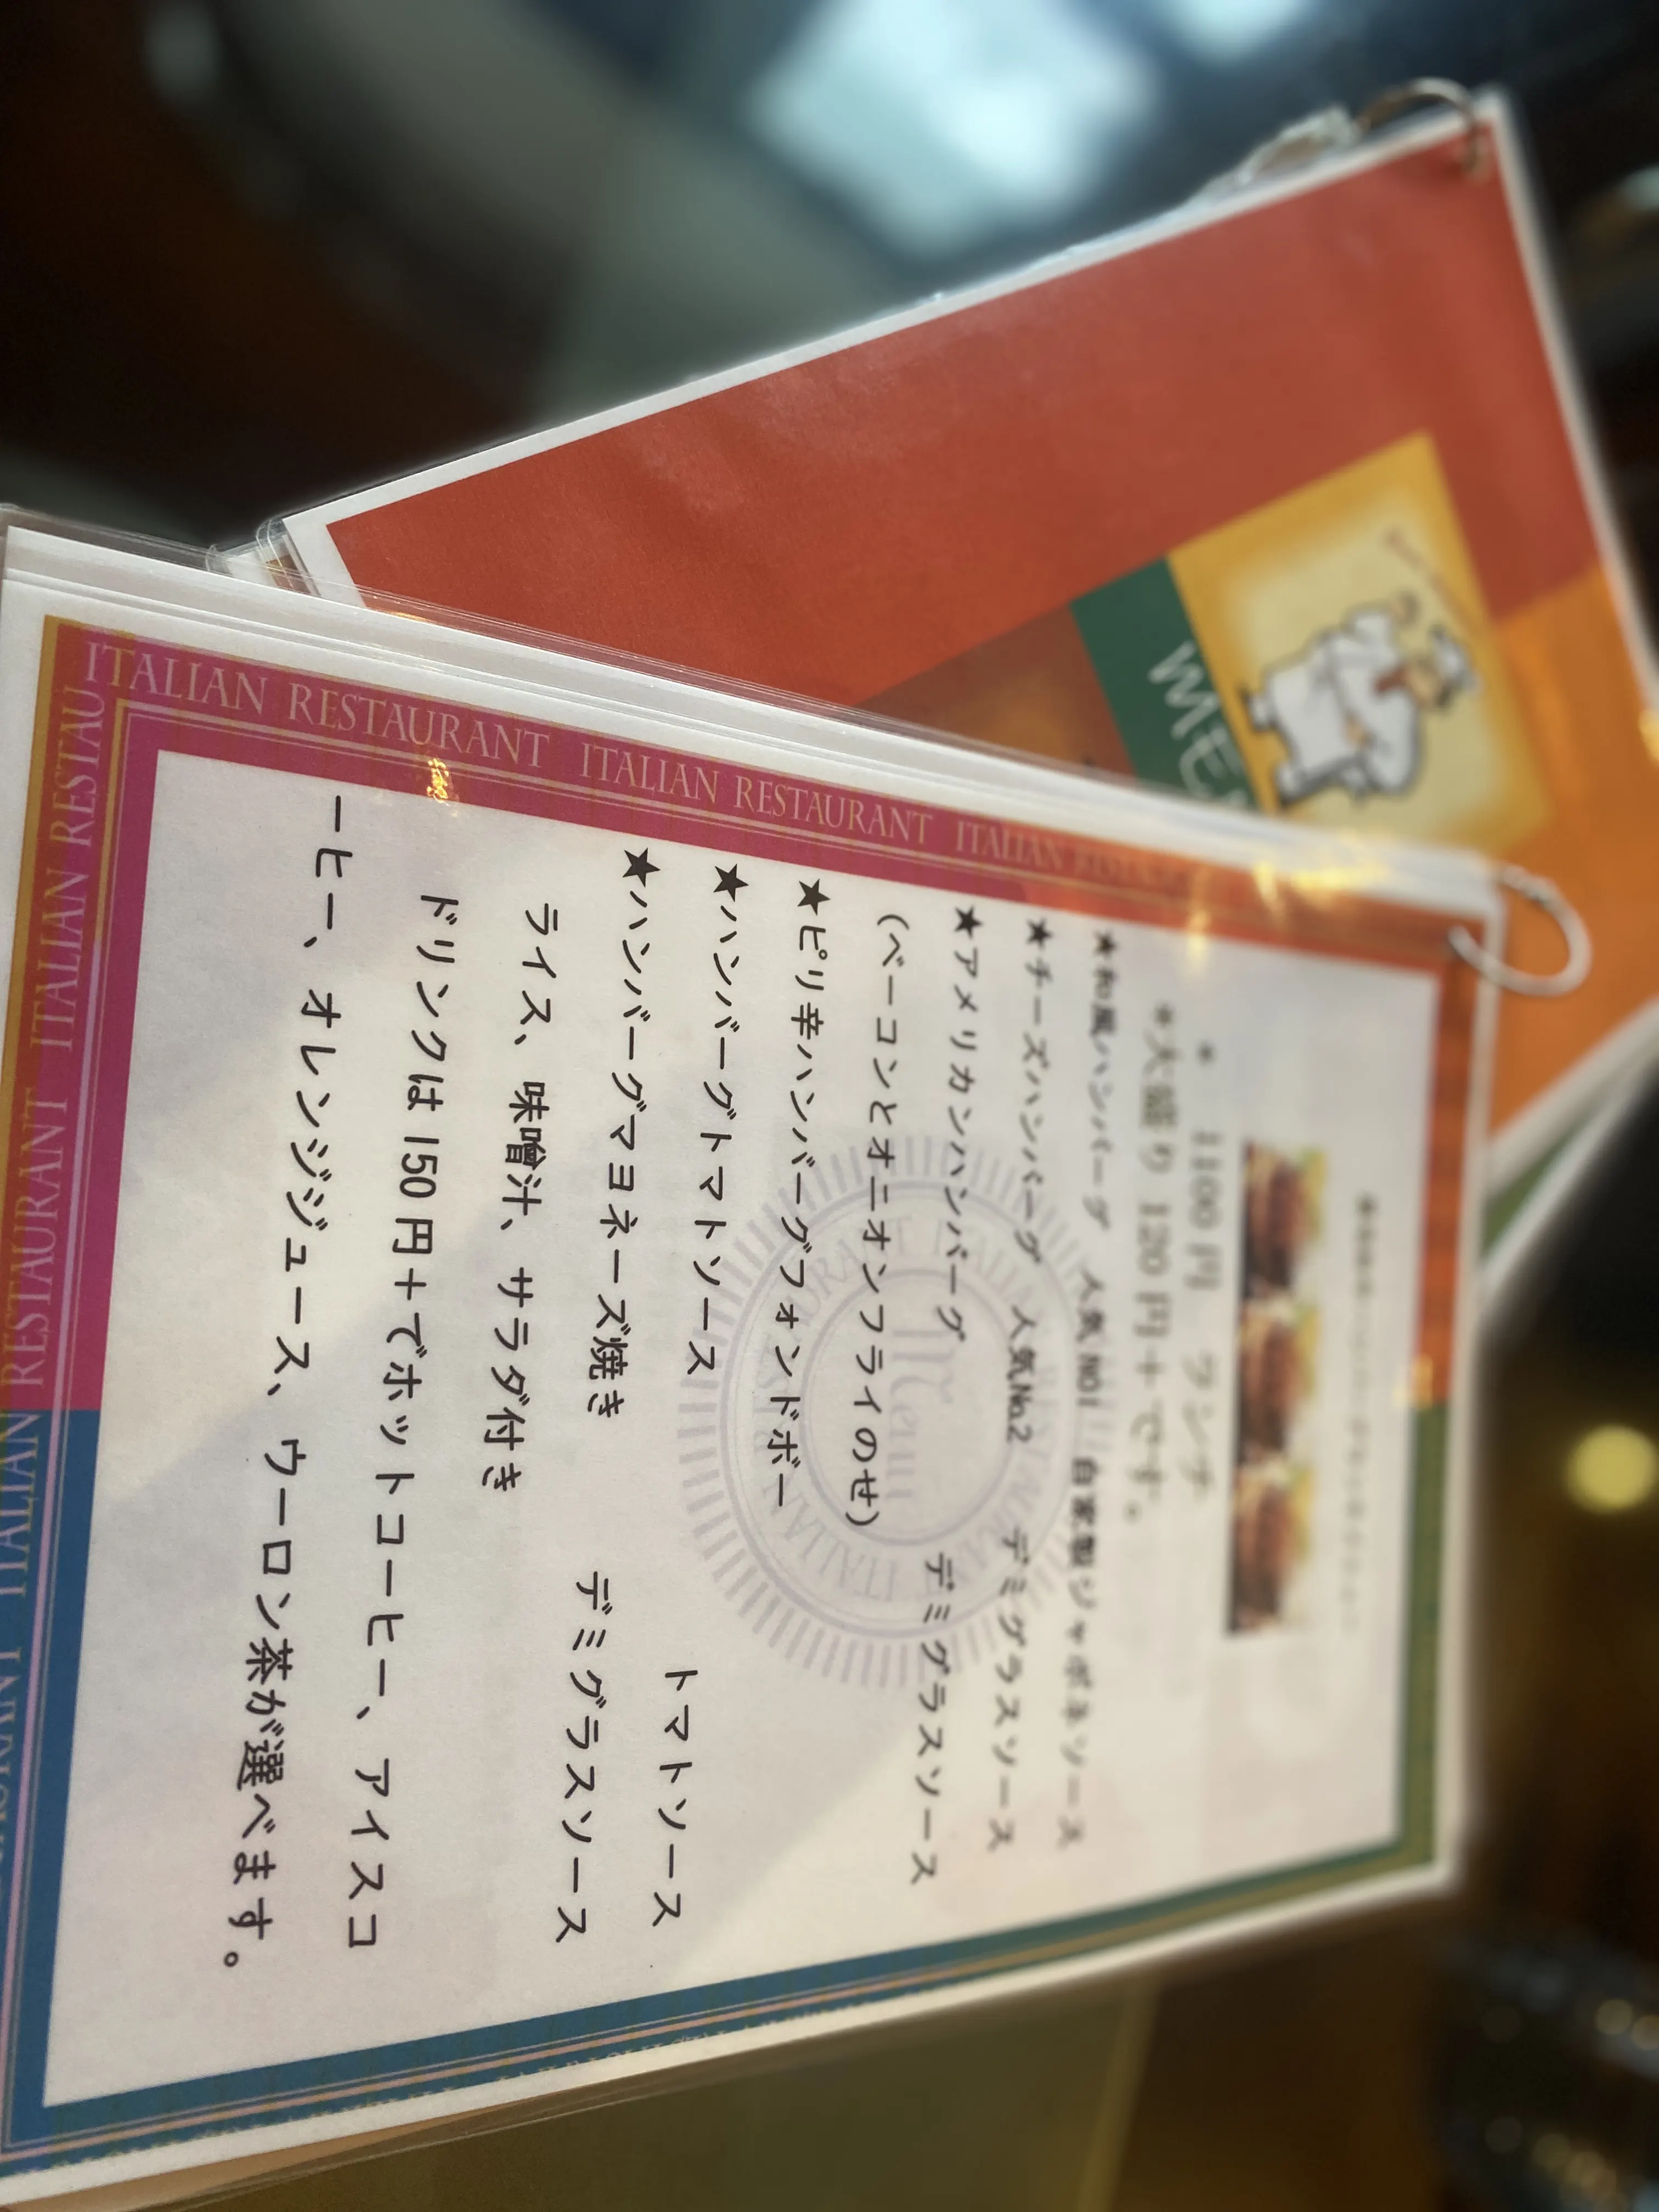 * 1100円 ランチ
*大盛り 120円+です。
★和風ハンバーグ 人気NO1 自家製ジャポネソース
★チーズハンバーグ 人気No.2 デミグラスソース
★アメリカンハンバーグ デミグラスソース
(ベーコンとオニオンフライのせ)
★ピリ辛ハンバーグフォンドボー
★ハンバーグトマトソース トマトソース
★ハンバーグマヨネーズ焼き デミグラスソース
ライス、味噌汁、サラダ付き
ドリンクは150円+でホットコーヒー、アイスコ
ーヒー、オレンジジュース、ウーロン茶が選べます。
ITALIAN RESTAURANT ITALIAN RESTAURANT ITALIAN RESTAURANT
ITALIAN RESTAURANT ITALIAN RESTAU
Menu